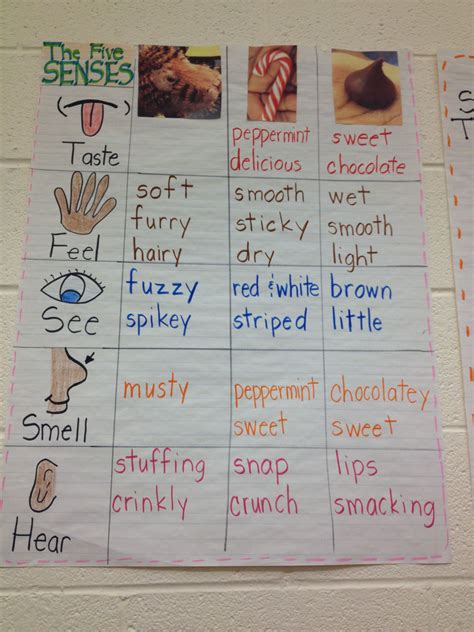 The Five
SENSES
Taste
peppermint
delicious
sweet
chocolate
Feel
soft
furry
hairy
smooth
sticky
dry
wet
smooth
light
See
fuzzy
spikey
red & white
striped
brown
little
Smell
musty
peppermint
sweet
chocolatey
sweet
Hear
stuffing
crinkly
snap
crunch
lips
smacking
S
T